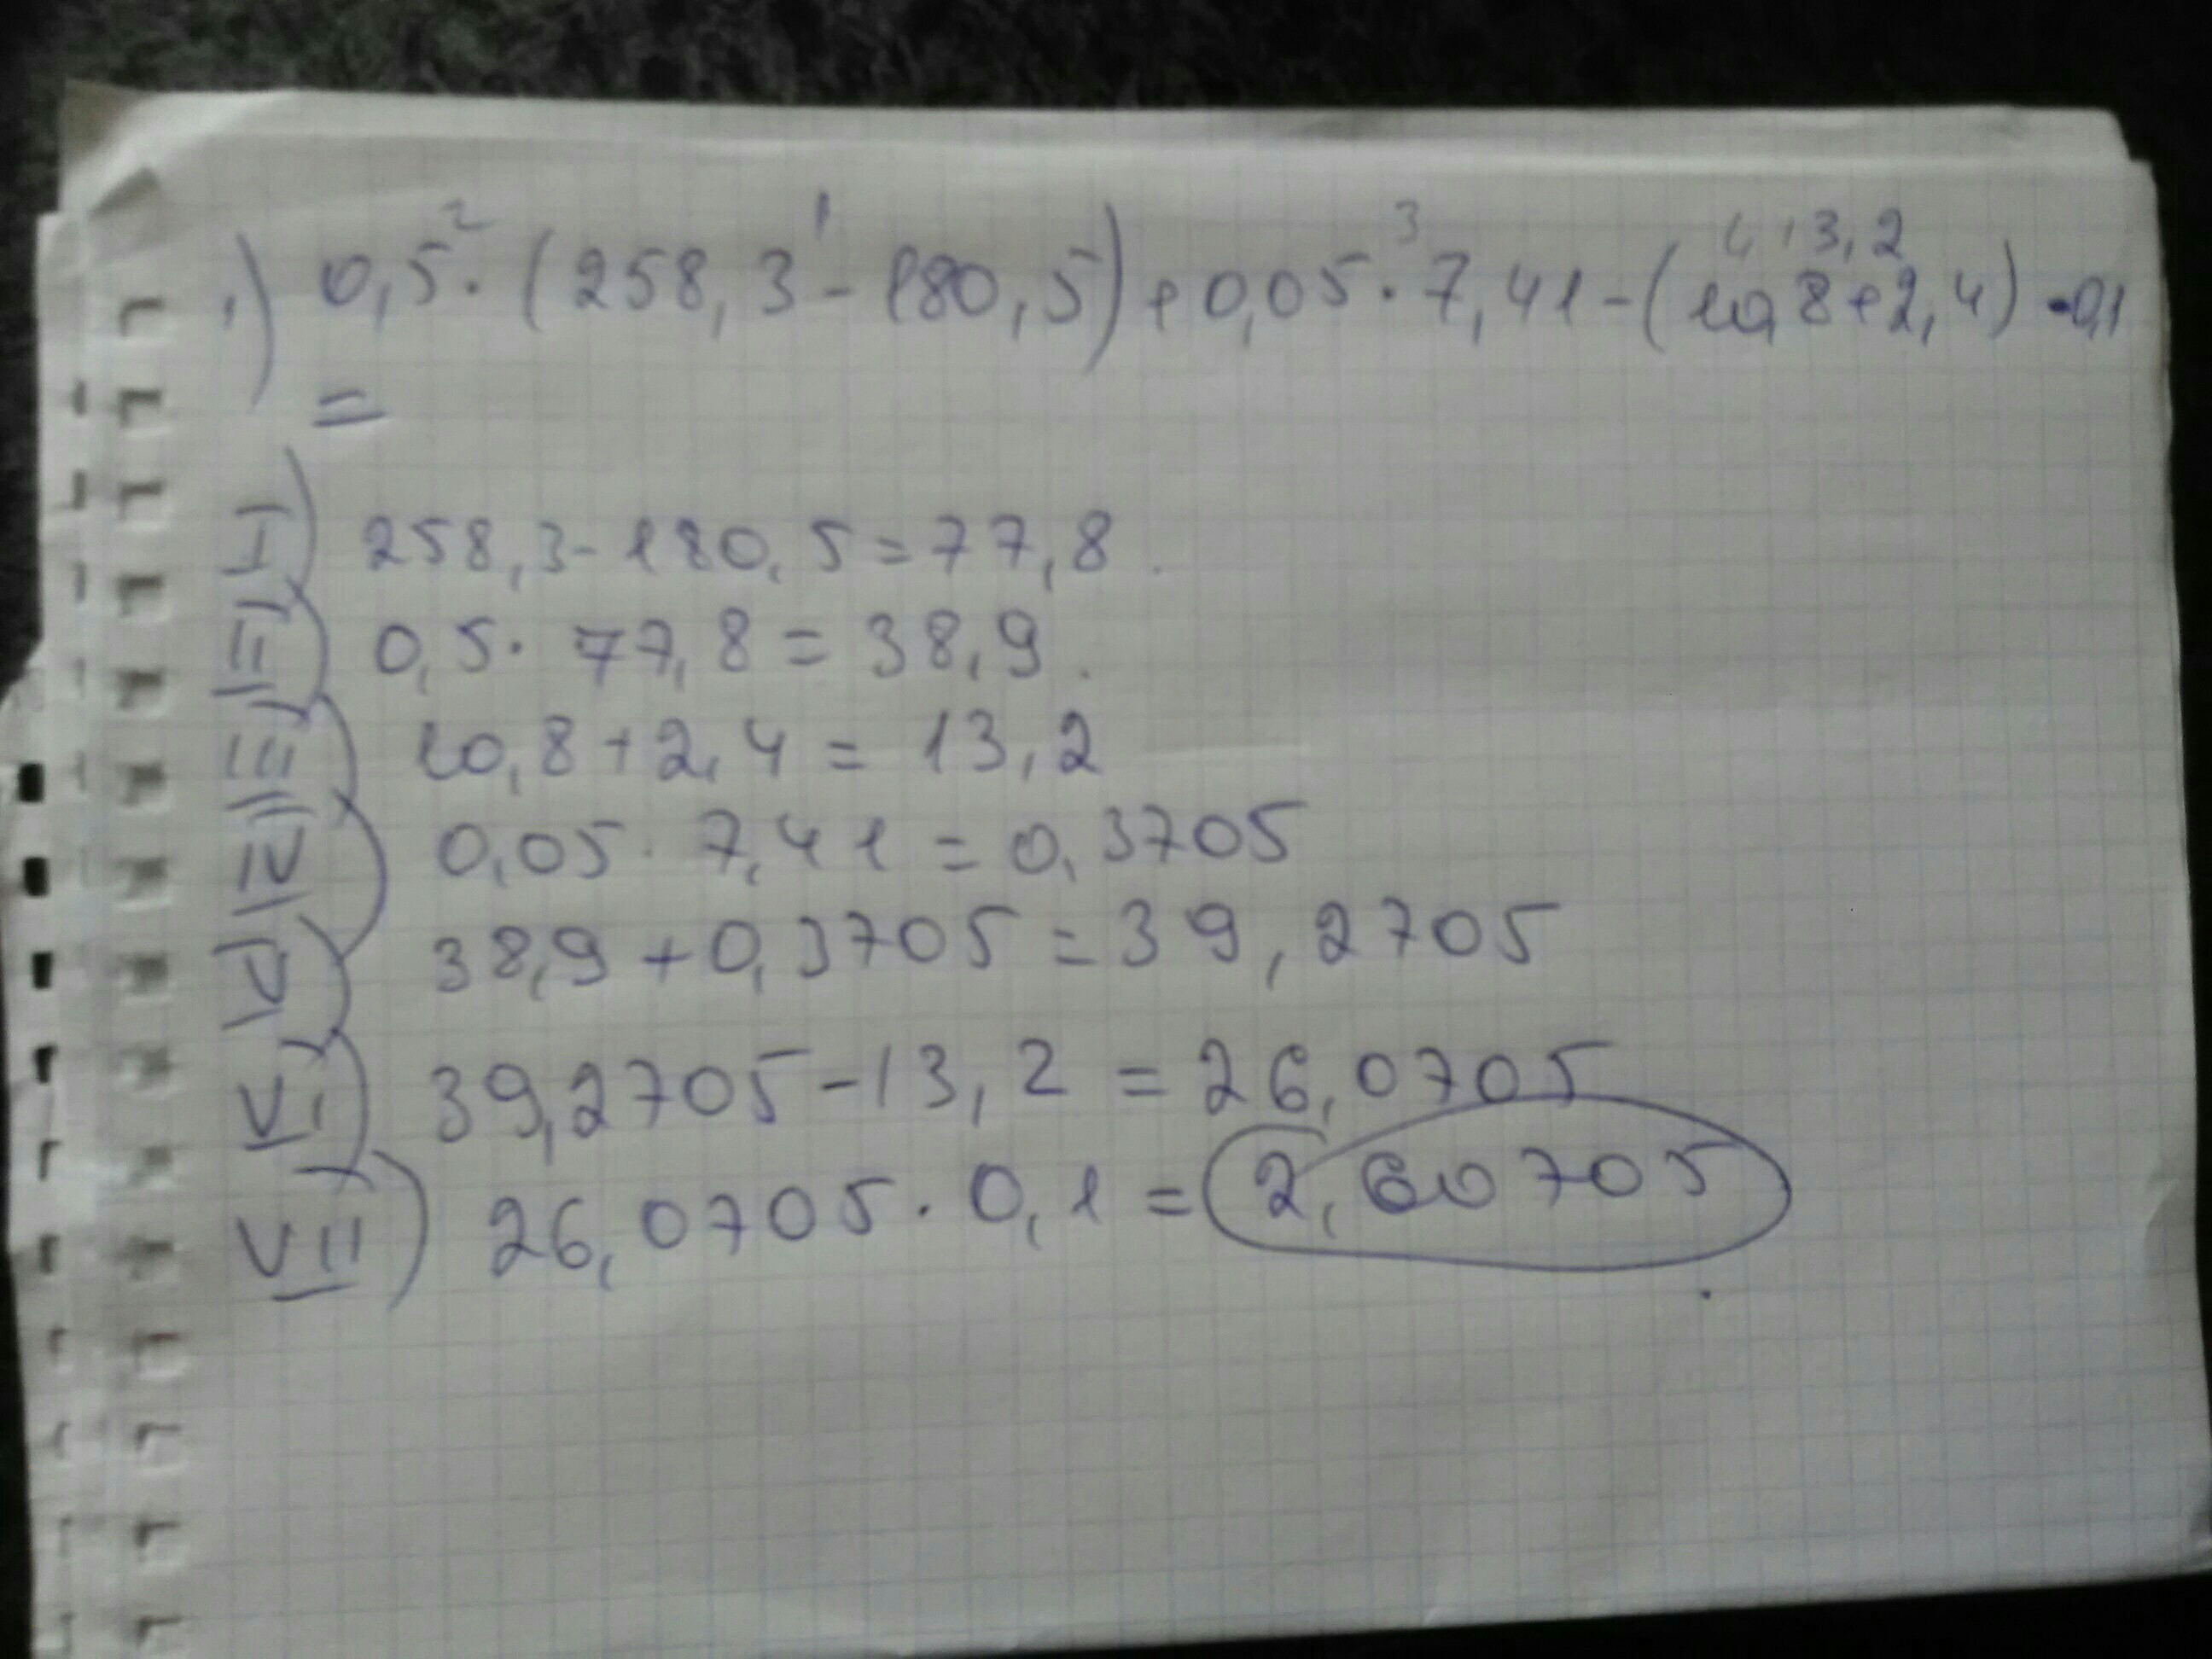 2 1 3 4 13,2
1) 0,5 · (258,3 - 180,5) + 0,05 · 7,41 - (10,8 + 2,4) · 0,1
=
I) 258,3 - 180,5 = 77,8.
II) 0,5 · 77,8 = 38,9.
III) 10,8 + 2,4 = 13,2
IV) 0,05 · 7,41 = 0,3705
V) 38,9 + 0,3705 = 39,2705
VI) 39,2705 - 13,2 = 26,0705
VII) 26,0705 · 0,1 = 2,60705